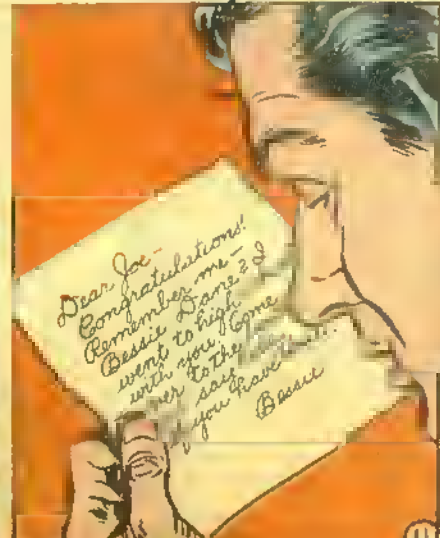 Dear Joe-
Congratulations!
Remember me-
Bessie Dane? I
went to high
with you. Come
to the
say
you have
Bessie